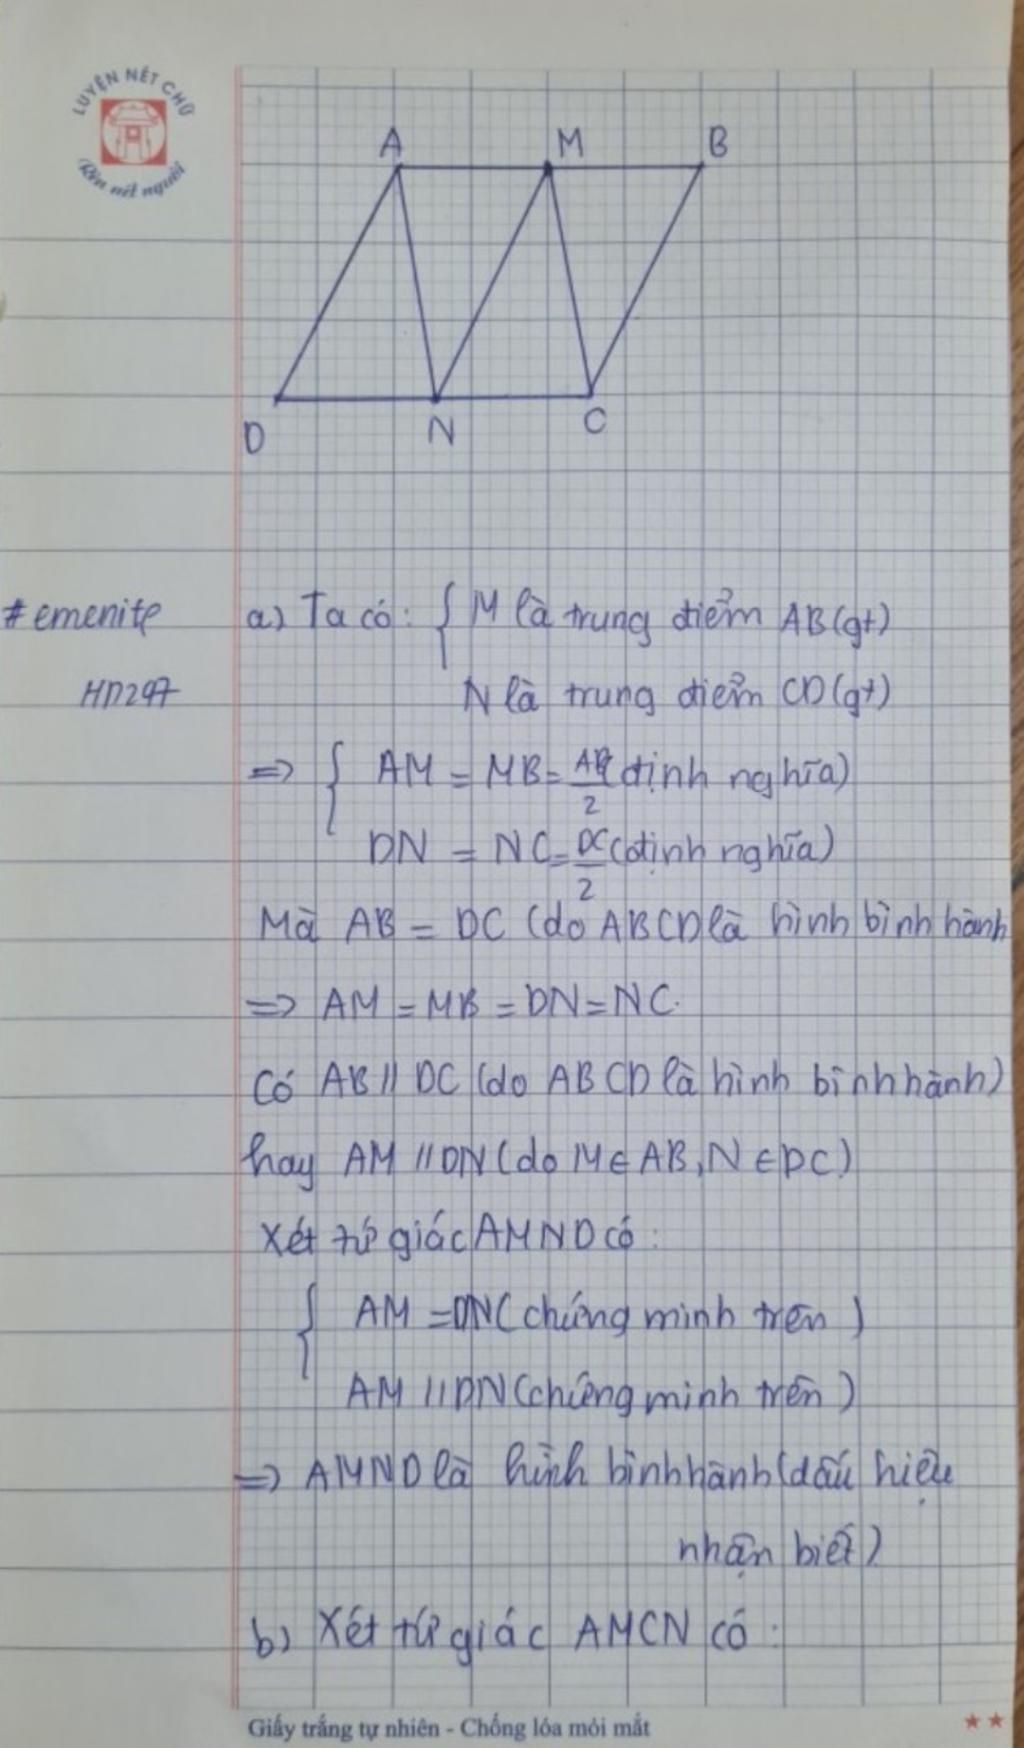 LUYỆN NÉT CHỮ
Rèn nết người
A M B
D N C
#emenite a) Ta có: { M là trung điểm AB(gt)
HD247 N là trung điểm CD(gt)
=> { AM = MB = AB/2 (định nghĩa)
DN = NC = DC/2 (định nghĩa)
Mà AB = DC (do ABCD là hình bình hành
=> AM = MB = DN = NC.
Có AB // DC (do ABCD là hình bình hành)
hay AM // DN (do M ∈ AB, N ∈ DC)
Xét tứ giác AMND có:
{ AM = DN (chứng minh trên)
AM // DN (chứng minh trên)
=> AMND là hình bình hành (dấu hiệu
nhận biết)
b) Xét tứ giác AMCN có:
Giấy trắng tự nhiên - Chống lóa mỏi mắt